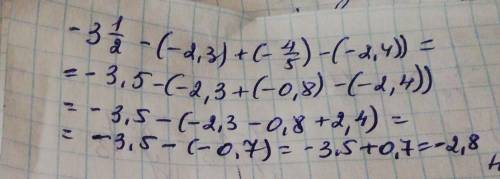 -3 1/2 - (-2,3) + (- 4/5) - (-2,4)) =
= - 3,5 - (-2,3 + (-0,8) - (-2,4))
= - 3,5 - (-2,3 - 0,8 + 2,4) =
= -3,5 - (-0,7) = -3,5 + 0,7 = -2,8